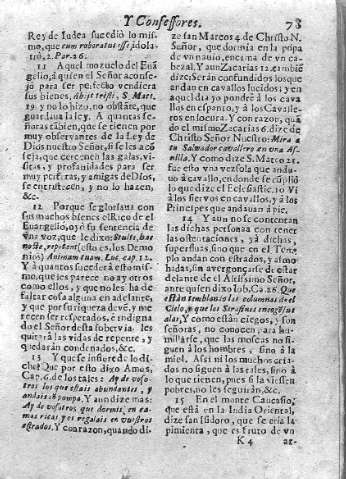 Y Confessores. 78
Rey de Iudea sucedió lo mismo,
que cum roboratus esset idolatrió,
2. Par. 26.
11 Aquel mozuelo del Euãgelio,
á quien el Señor aconsejó
para ser perfecto vendiera
sus bienes, Abijt tristis, S. Matt.
19. y no lo hizo, no obstãte, que
guardaua la ley. A quantas señoras
tãbien, que se tienen por
muy observantes de la Ley de
Dios nuestro Señor, si se les aconseja,
que cercenen las galas, visitas,
y profanidades para ser
muy perfetas, y amigas de Dios,
se entristecen, y no lo hazen,
&c.
12 Porque se gloriaua con
sus muchos bienes el Rico de el
Euangelio, oyó su sentencia de
vna voz, que le dixo: Stulte, hac
nocte, repetent (esto es, los Demonios)
Animam tuam, Luc. cap. 12.
Y á quantos sucederá esto mismo,
que les parece no ay otros
como ellos, y que no les ha de
faltar cosa alguna en adelante,
y que por su riqueza deve, y merecen
ser respetados, è indignado
el Señor desta sobervia les
quitará las vidas de repente, y
quedarán condenados, &c.
13 Y que se infiere de lo dicho?
Que por esto dixo Amos,
Cap. 6. de los tales: Ay de vosotros
los que estais abundantes, y
andais à pompa. Y aun dize mas:
Ay de vosotros, que dormis en camas
ricas y os regalais en vuestros
estrados. Y con razon, quando dize
san Marcos 4. de Christo N.
Señor, que dormia en la popa
de vn nauio, encima de vn cabezal.
Y aun Zacarias 12. tambiẽ
dize: Serán confundidos los que
andan en cavallos lozios; y en
aquel dia yo pondré à los cavallos
en espanto, y á los Cavalleros
en locura. Y con razon, quãdo
el mismo Zacarias 6. dize de
Christo Señor Nuestro: Mira a
tu Salvador cavallero en vna Asnilla.
Y como dize S. Mateo 21.
fue esto vna vez sola que anduuo
á cavallo, en donde se cũplió
lo que dize el Eclesiastic. 10 Vi
á los siervos en cavallos, y á los
Principes que andauan á pie.
14 Y aun no se contentan
las dichas personas con tener
las ostentaciones, y á dichas,
superfluas, sino que en el Templo
andan con estrados, y almohadas,
sin avergonçarse de estar
delante de el Altissimo Señor,
ante quien dize Iob. Ca. 26. Que
están temblando las columnas de el
Cielo, y que los Serafines encogen sus
alas, Y como están ciegos, y son
señoras, no conocen, ara humillarse,
que las moscas no siguen
á los hombres, sino á la
miel. Assi ni los muchos criados
no siguen á los tales, sino á lo
que tienen, pues si la vieran
pobres, no les seguirán, &c.
15 En el monte Caucasio,
que está en la India Oriental,
dize san Isidoro, que se cria la
pimienta, que es fruto de vn
K 4 ar-